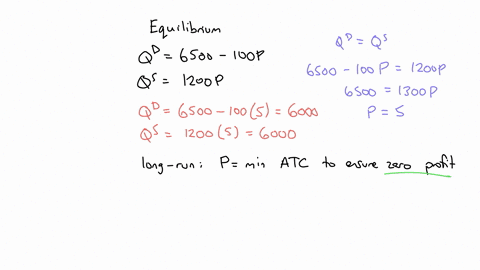 Equilibrium
Q^D = 6500 - 100P
Q^S = 1200P
Q^D = 6500 - 100(5) = 6000
Q^S = 1200(5) = 6000
Q^D = Q^S
6500 - 100P = 1200P
6500 = 1300P
P = 5
long-run: P = min ATC to ensure zero profit